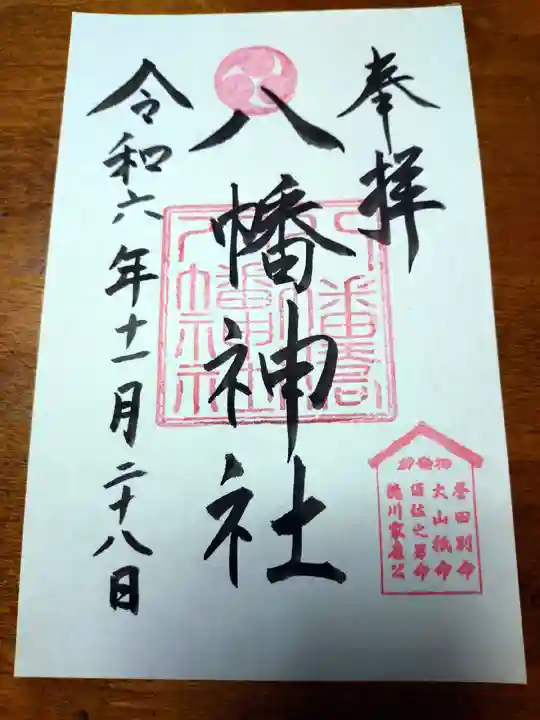 奉拝
八幡神社
令和六年十一月二十八日
誉田別命
大山祇命
須佐之男命
徳川家康公